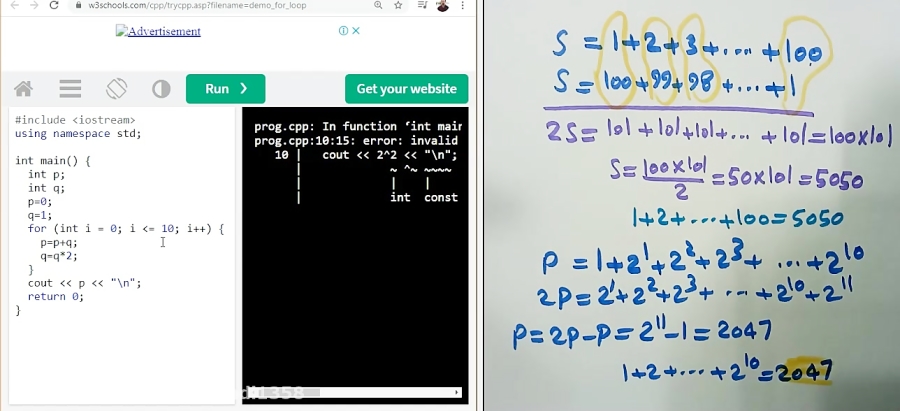 w3schools.com/cpp/trycpp.asp?filename=demo_for_loop
Advertisement
Run ❯
Get your website
#include <iostream>
using namespace std;
int main() {
int p;
int q;
p=0;
q=1;
for (int i = 0; i <= 10; i++) {
p=p+q;
q=q*2;
}
cout << p << "\n";
return 0;
}
prog.cpp: In function 'int mair
prog.cpp:10:15: error: invalid
10 | cout << 2^2 << "\n";
| ~ ^~ ~~~~
| | |
| int const
1358
S = 1+2+3+....+100
S = 100+99+98+...+1
2S = 101+101+101+...+101=100x101
S = 100x101/2 = 50x101 = 5050
1+2+...+100=5050
P = 1+2^1+2^2+2^3+ ...+2^10
2P = 2^1+2^2+2^3+ ...+2^10+2^11
P=2P-P=2^11-1=2047
1+2+...+2^10=2047